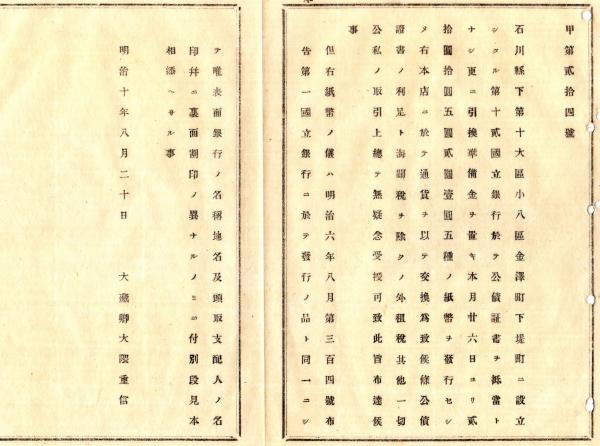 甲第貳拾四號
石川縣下第十大區小八區金澤町下堤町ニ設立
シタル第十貳國立銀行於テ公債証書ヲ抵當ト
ナシ更ニ引換準備金ヲ置キ本月廿六日ヨリ貳
拾圓拾圓五圓貳圓壹圓五種ノ紙幣ヲ發行セシ
メ右本店ニ於テ通貨ヲ以テ交換爲致候條公債
證書ノ利足ト海關稅ヲ除クノ外租稅其他一切
公私ノ取引上總テ無疑念受授可致此旨布達候
事
但右紙幣ノ儀ハ明治六年八月第三百四號布
告第一國立銀行ニ於テ發行ノ品ト同一ニシ
テ唯表面銀行ノ名稱地名及頭取支配人ノ名
印幷ニ裏面割印ノ異ナルノミニ付別段見本
相添ヘサル事
明治十年八月二十日　大藏卿大隈重信